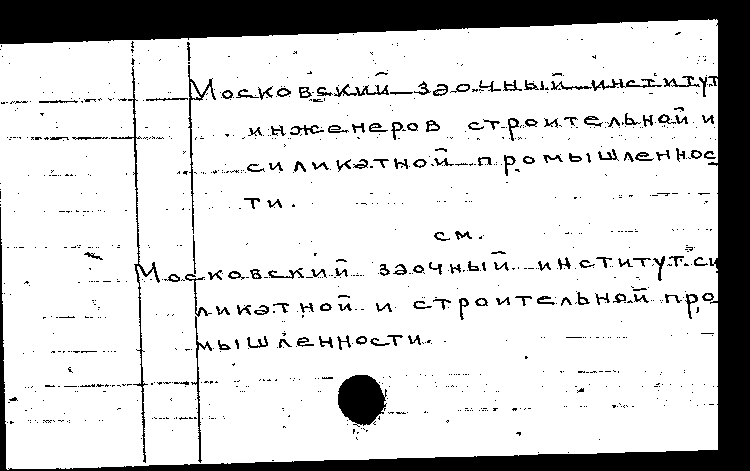 Московский заочный институт
инженеров строительной и
силикатной промышленнос
ти.
см.
Московский заочный институт си
ликатной и строительной про
мышленности.